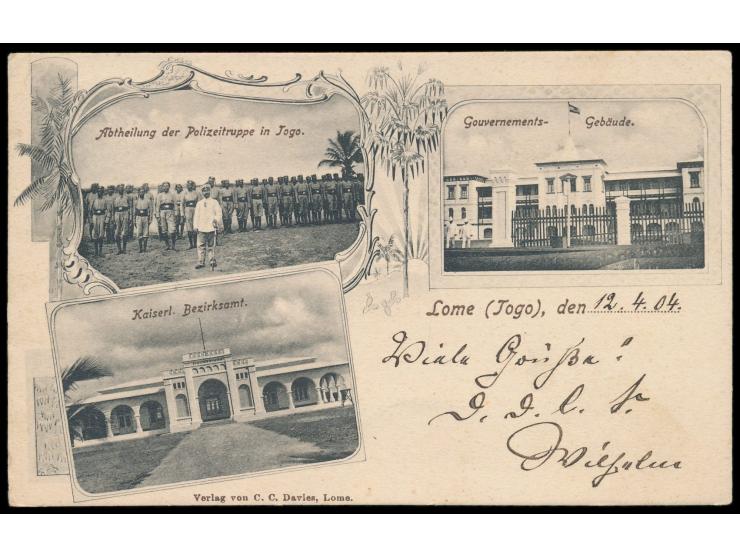 Abtheilung der Polizeitruppe in Togo.
Gouvernements- Gebäude.
Kaiserl. Bezirksamt.
Lome (Togo), den 12. 4. 04.
Viele Grüße!
D. d. l. S.
Wilhelm
Verlag von C. C. Davies, Lome.